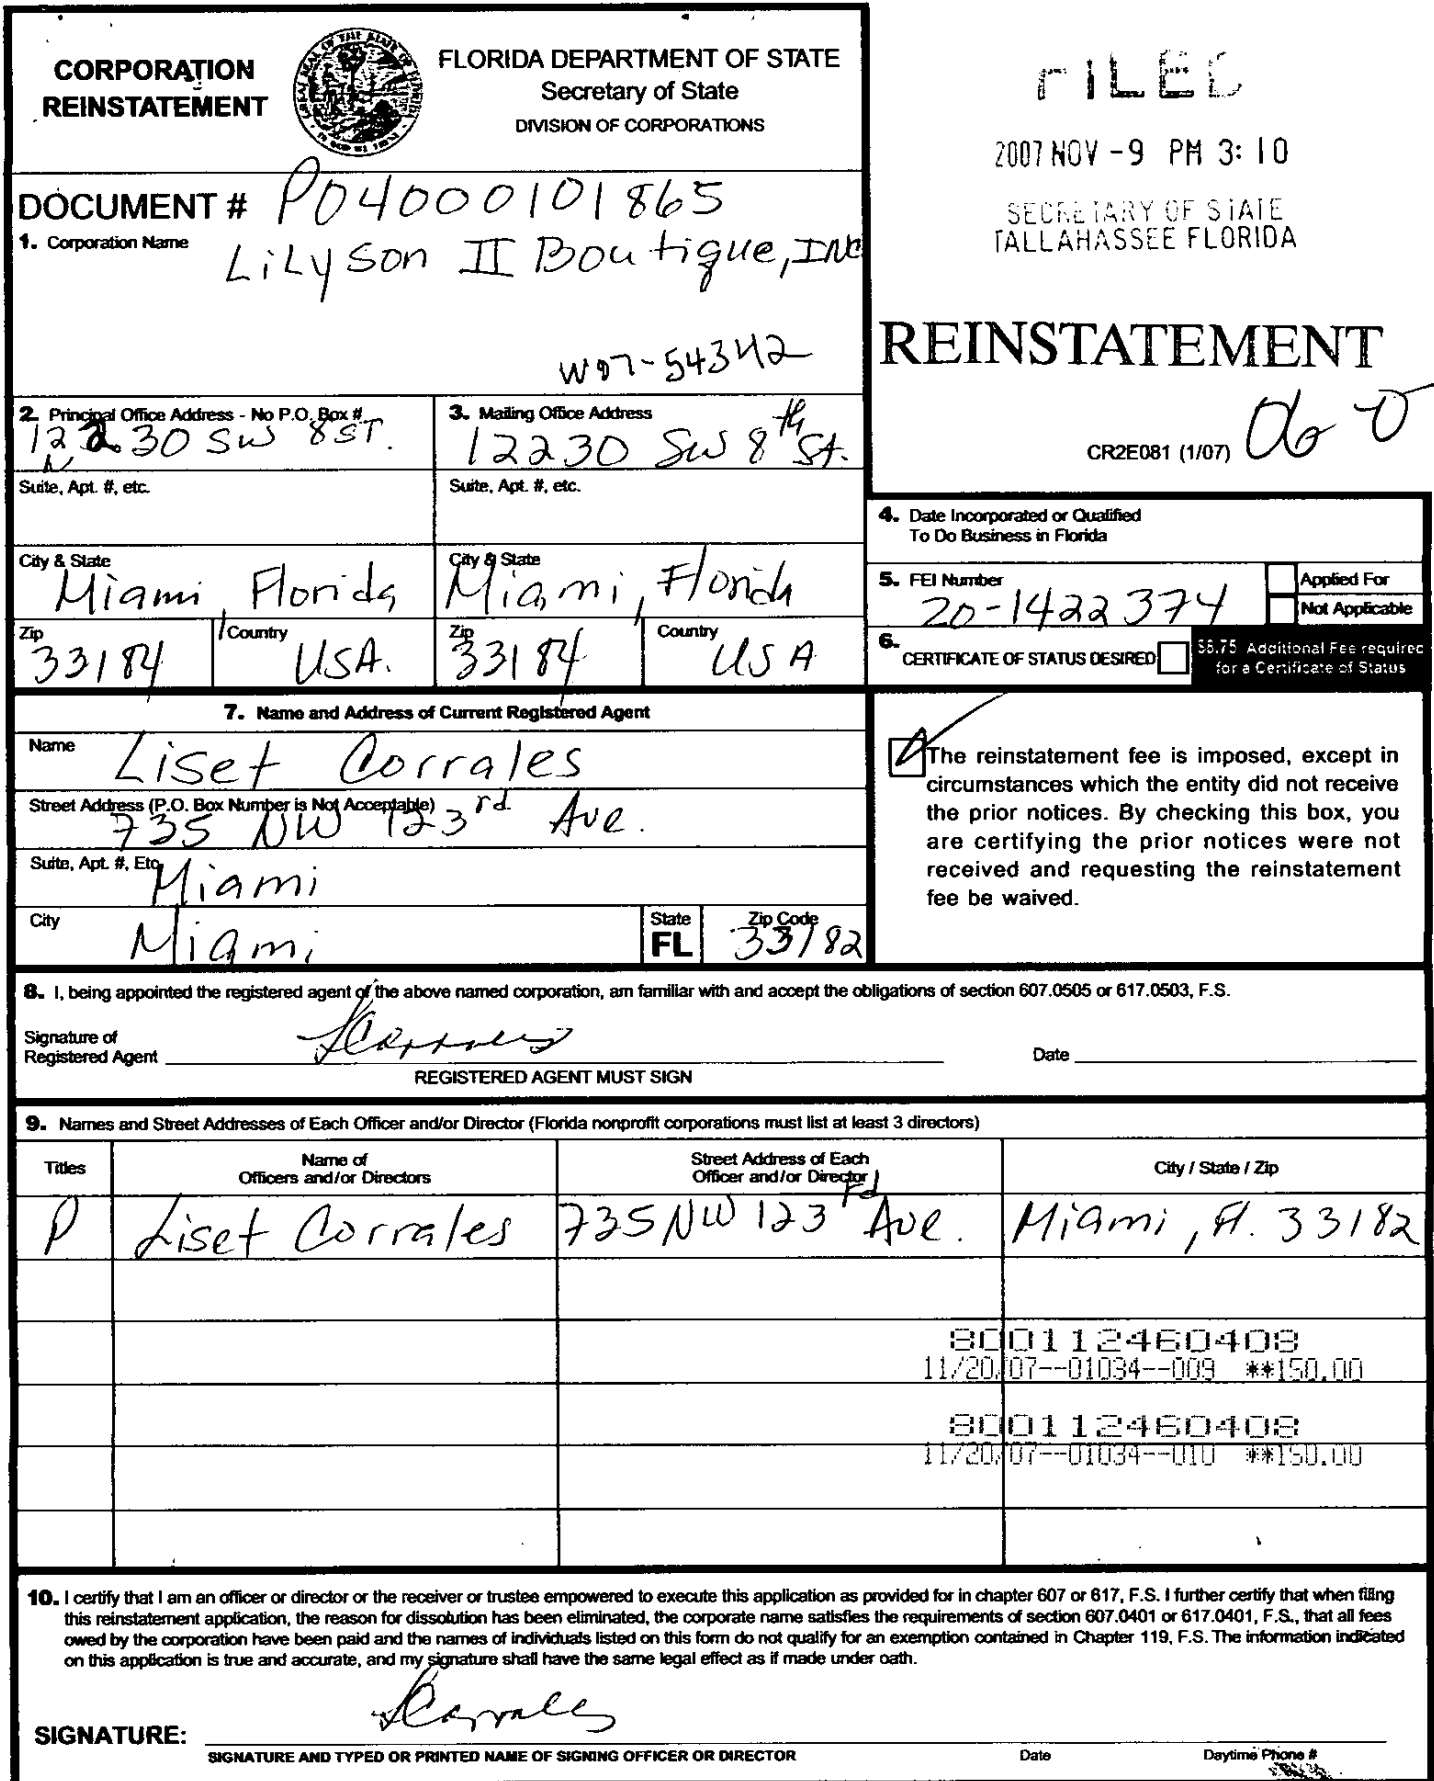 CORPORATION
REINSTATEMENT
FLORIDA DEPARTMENT OF STATE
Secretary of State
DIVISION OF CORPORATIONS
FILED
2007 NOV -9 PM 3:10
SECRETARY OF STATE
TALLAHASSEE FLORIDA
DOCUMENT # P04000101865
1. Corporation Name
LiLyson II Boutique, INC
W07-54342
REINSTATEMENT
CR2E081 (1/07)
2. Principal Office Address - No P.O. Box #
12230 SW 8 ST.
3. Mailing Office Address
12230 SW 8th St.
Suite, Apt. #, etc.
Suite, Apt. #, etc.
City & State
Miami, Florida
City & State
Miami, Florida
Zip
33184
Country
USA.
Zip
33184
Country
USA
4. Date Incorporated or Qualified
To Do Business in Florida
5. FEI Number
20-1422374
Applied For
Not Applicable
6. CERTIFICATE OF STATUS DESIRED
$8.75 Additional Fee required
for a Certificate of Status
7. Name and Address of Current Registered Agent
Name
Liset Corrales
Street Address (P.O. Box Number is Not Acceptable)
735 NW 123rd Ave.
Suite, Apt. #, Etc.
Miami
City
Miami
State
FL
Zip Code
33182
The reinstatement fee is imposed, except in
circumstances which the entity did not receive
the prior notices. By checking this box, you
are certifying the prior notices were not
received and requesting the reinstatement
fee be waived.
8. I, being appointed the registered agent of the above named corporation, am familiar with and accept the obligations of section 607.0505 or 617.0503, F.S.
Signature of
Registered Agent
LCorrales
Date
REGISTERED AGENT MUST SIGN
9. Names and Street Addresses of Each Officer and/or Director (Florida nonprofit corporations must list at least 3 directors)
Titles
Name of
Officers and/or Directors
Street Address of Each
Officer and/or Director
City / State / Zip
P Liset Corrales 735 NW 123rd Ave. Miami, Fl. 33182
800112460408
11/20/07--01034--009 **150.00
800112460408
11/20/07--01034--010 **150.00
10. I certify that I am an officer or director or the receiver or trustee empowered to execute this application as provided for in chapter 607 or 617, F.S. I further certify that when filing
this reinstatement application, the reason for dissolution has been eliminated, the corporate name satisfies the requirements of section 607.0401 or 617.0401, F.S., that all fees
owed by the corporation have been paid and the names of individuals listed on this form do not qualify for an exemption contained in Chapter 119, F.S. The information indicated
on this application is true and accurate, and my signature shall have the same legal effect as if made under oath.
LCorrales
SIGNATURE:
SIGNATURE AND TYPED OR PRINTED NAME OF SIGNING OFFICER OR DIRECTOR
Date
Daytime Phone #